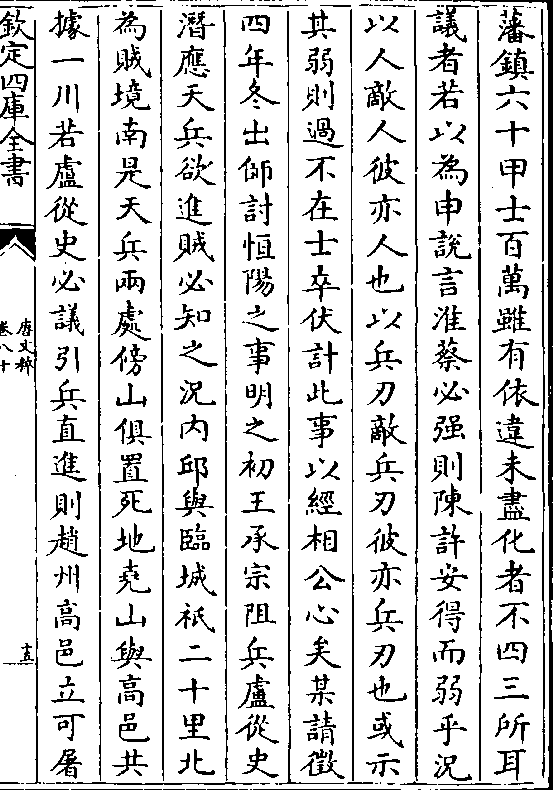 藩鎮六十甲士百萬雖有依違未盡化者不四三所耳
議者若以為申說言淮蔡必强則陳許安得而弱乎況
以人敵人彼亦人也以兵刃敵兵刃彼亦兵刃也或示
其弱則過不在士卒伏計此事以經相公心矣某請徵
四年冬出師討恒陽之事明之初王承宗阻兵盧從史
潛應天兵欲進賊必知之況内邱與臨城祇二十里北
為賊境南是天兵兩處傍山俱置死地堯山與高邑共
據一川若盧從史必議引兵直進則趙州高邑立可屠
欽定四庫全書
唐文粹
卷八十
十五